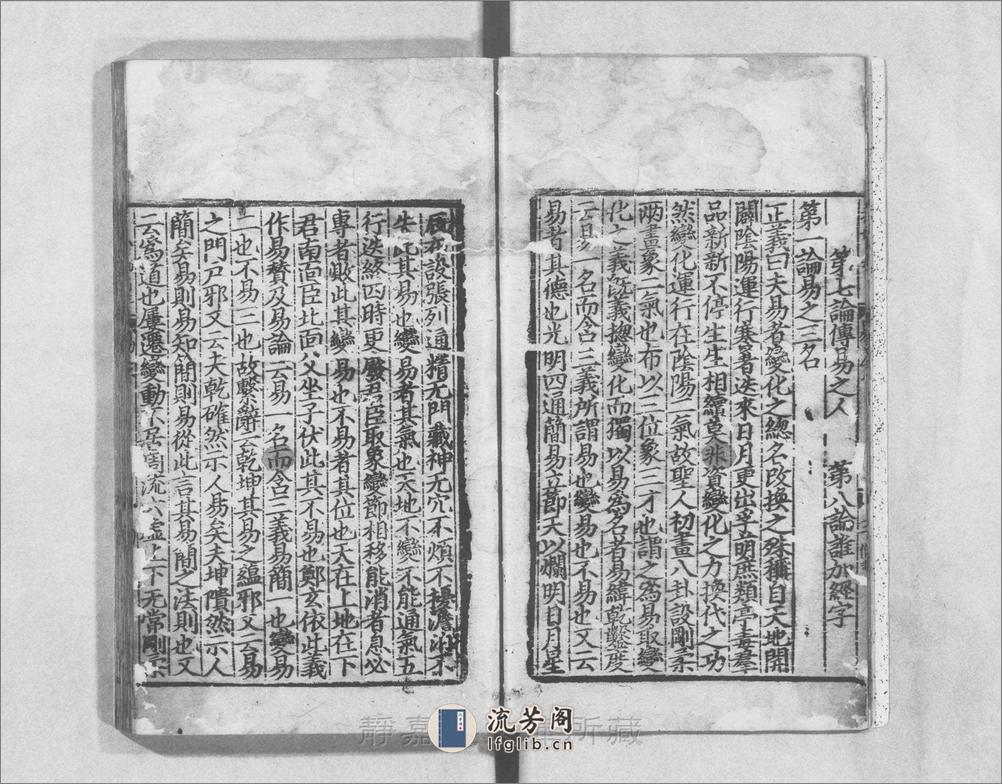 第七論傳易之人　第八論誰加經字
第一論易之三名
正義曰夫易者變化之緫名改換之殊稱自天地開
闢陰陽運行寒暑迭來日月更出孚萌庶類亭毒羣
品新新不停生生相續莫非資變化之力換代之功
然變化運行在陰陽二氣故聖人初畫八卦設剛柔
兩畫象二氣也布以三位象三才也謂之爲易取變
化之義旣義揔變化而獨以易爲名者易緯乾鑿度
云易一名而含三義所謂易也變易也不易也又云
易者其德也光明四通簡易立節天以爛明日月星
辰布設張列通精无門藏神无穴不煩不擾澹泊不
失此其易也變易者其氣也天地不變不能通氣五
行迭終四時更廢君臣取象變節相移能消者息必
專者敗此其變易也不易者其位也天在上地在下
君南面臣北面父坐子伏此其不易也鄭玄依此義
作易贊及易論云易一名而含三義易簡一也變易
二也不易三也故繫辭云乾坤其易之蘊邪又云易
之門戸邪又云夫乾確然示人易矣夫坤隤然示人
簡矣易則易知簡則易從此言其易簡之法則也又
云爲道也屢遷變動不居周流六虛上下无常剛柔
靜嘉 所藏
流芳阁
lfglib.cn